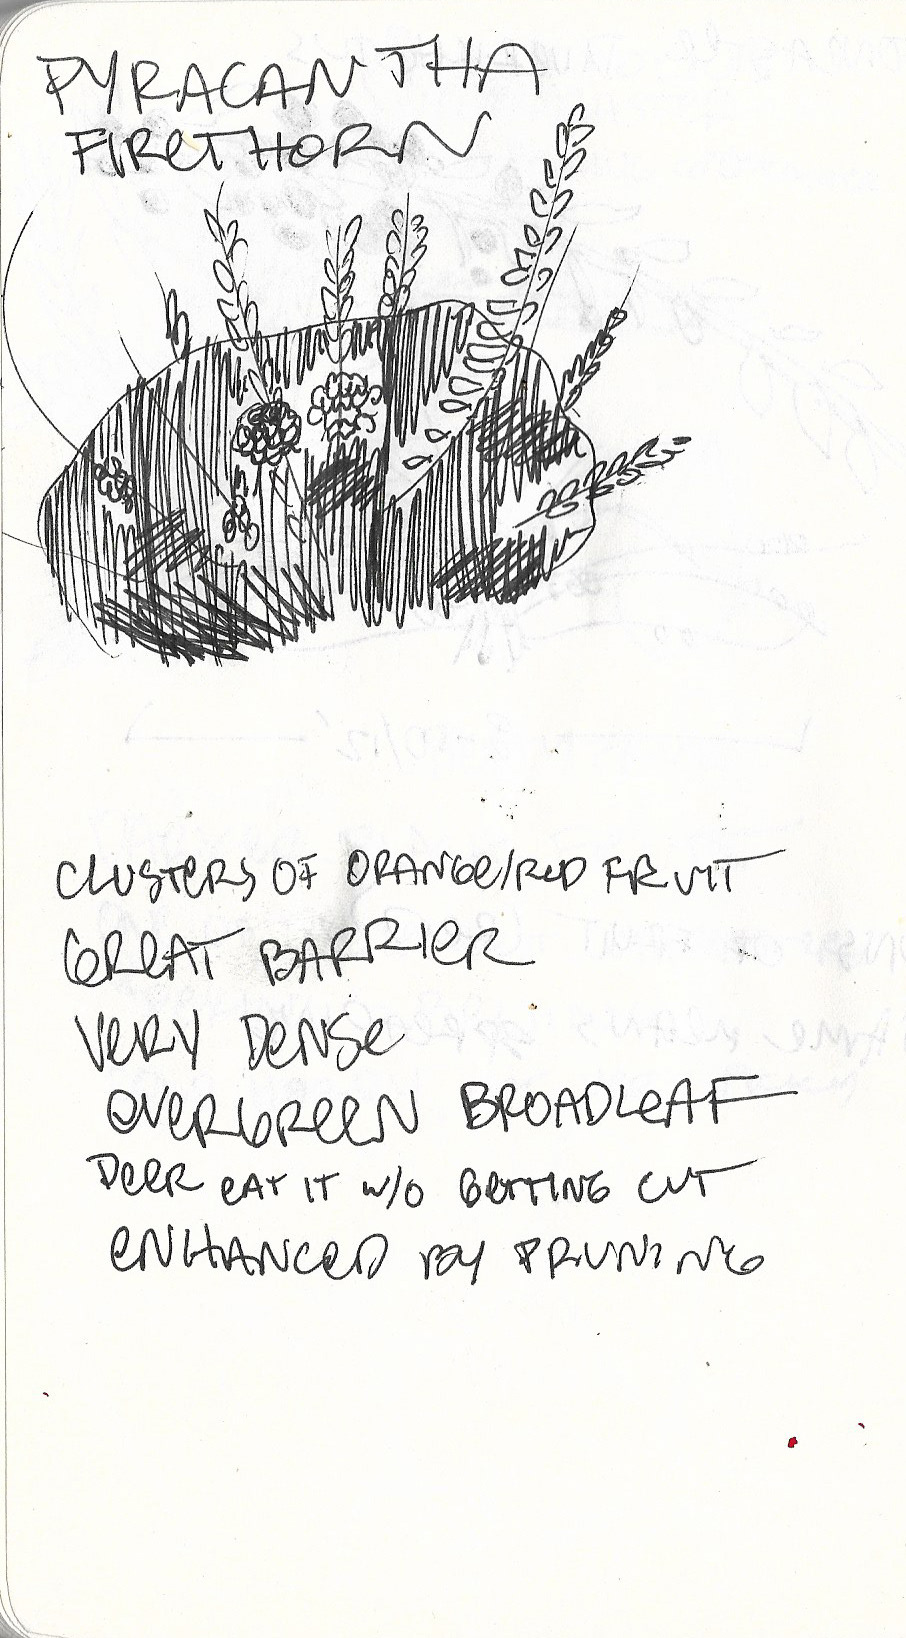 PYRACANTHA
FIRETHORN
CLUSTERS OF ORANGE/RED FRUIT
GREAT BARRIER
VERY DENSE
EVERGREEN BROADLEAF
DEER EAT IT W/O GETTING CUT
ENHANCED BY PRUNING